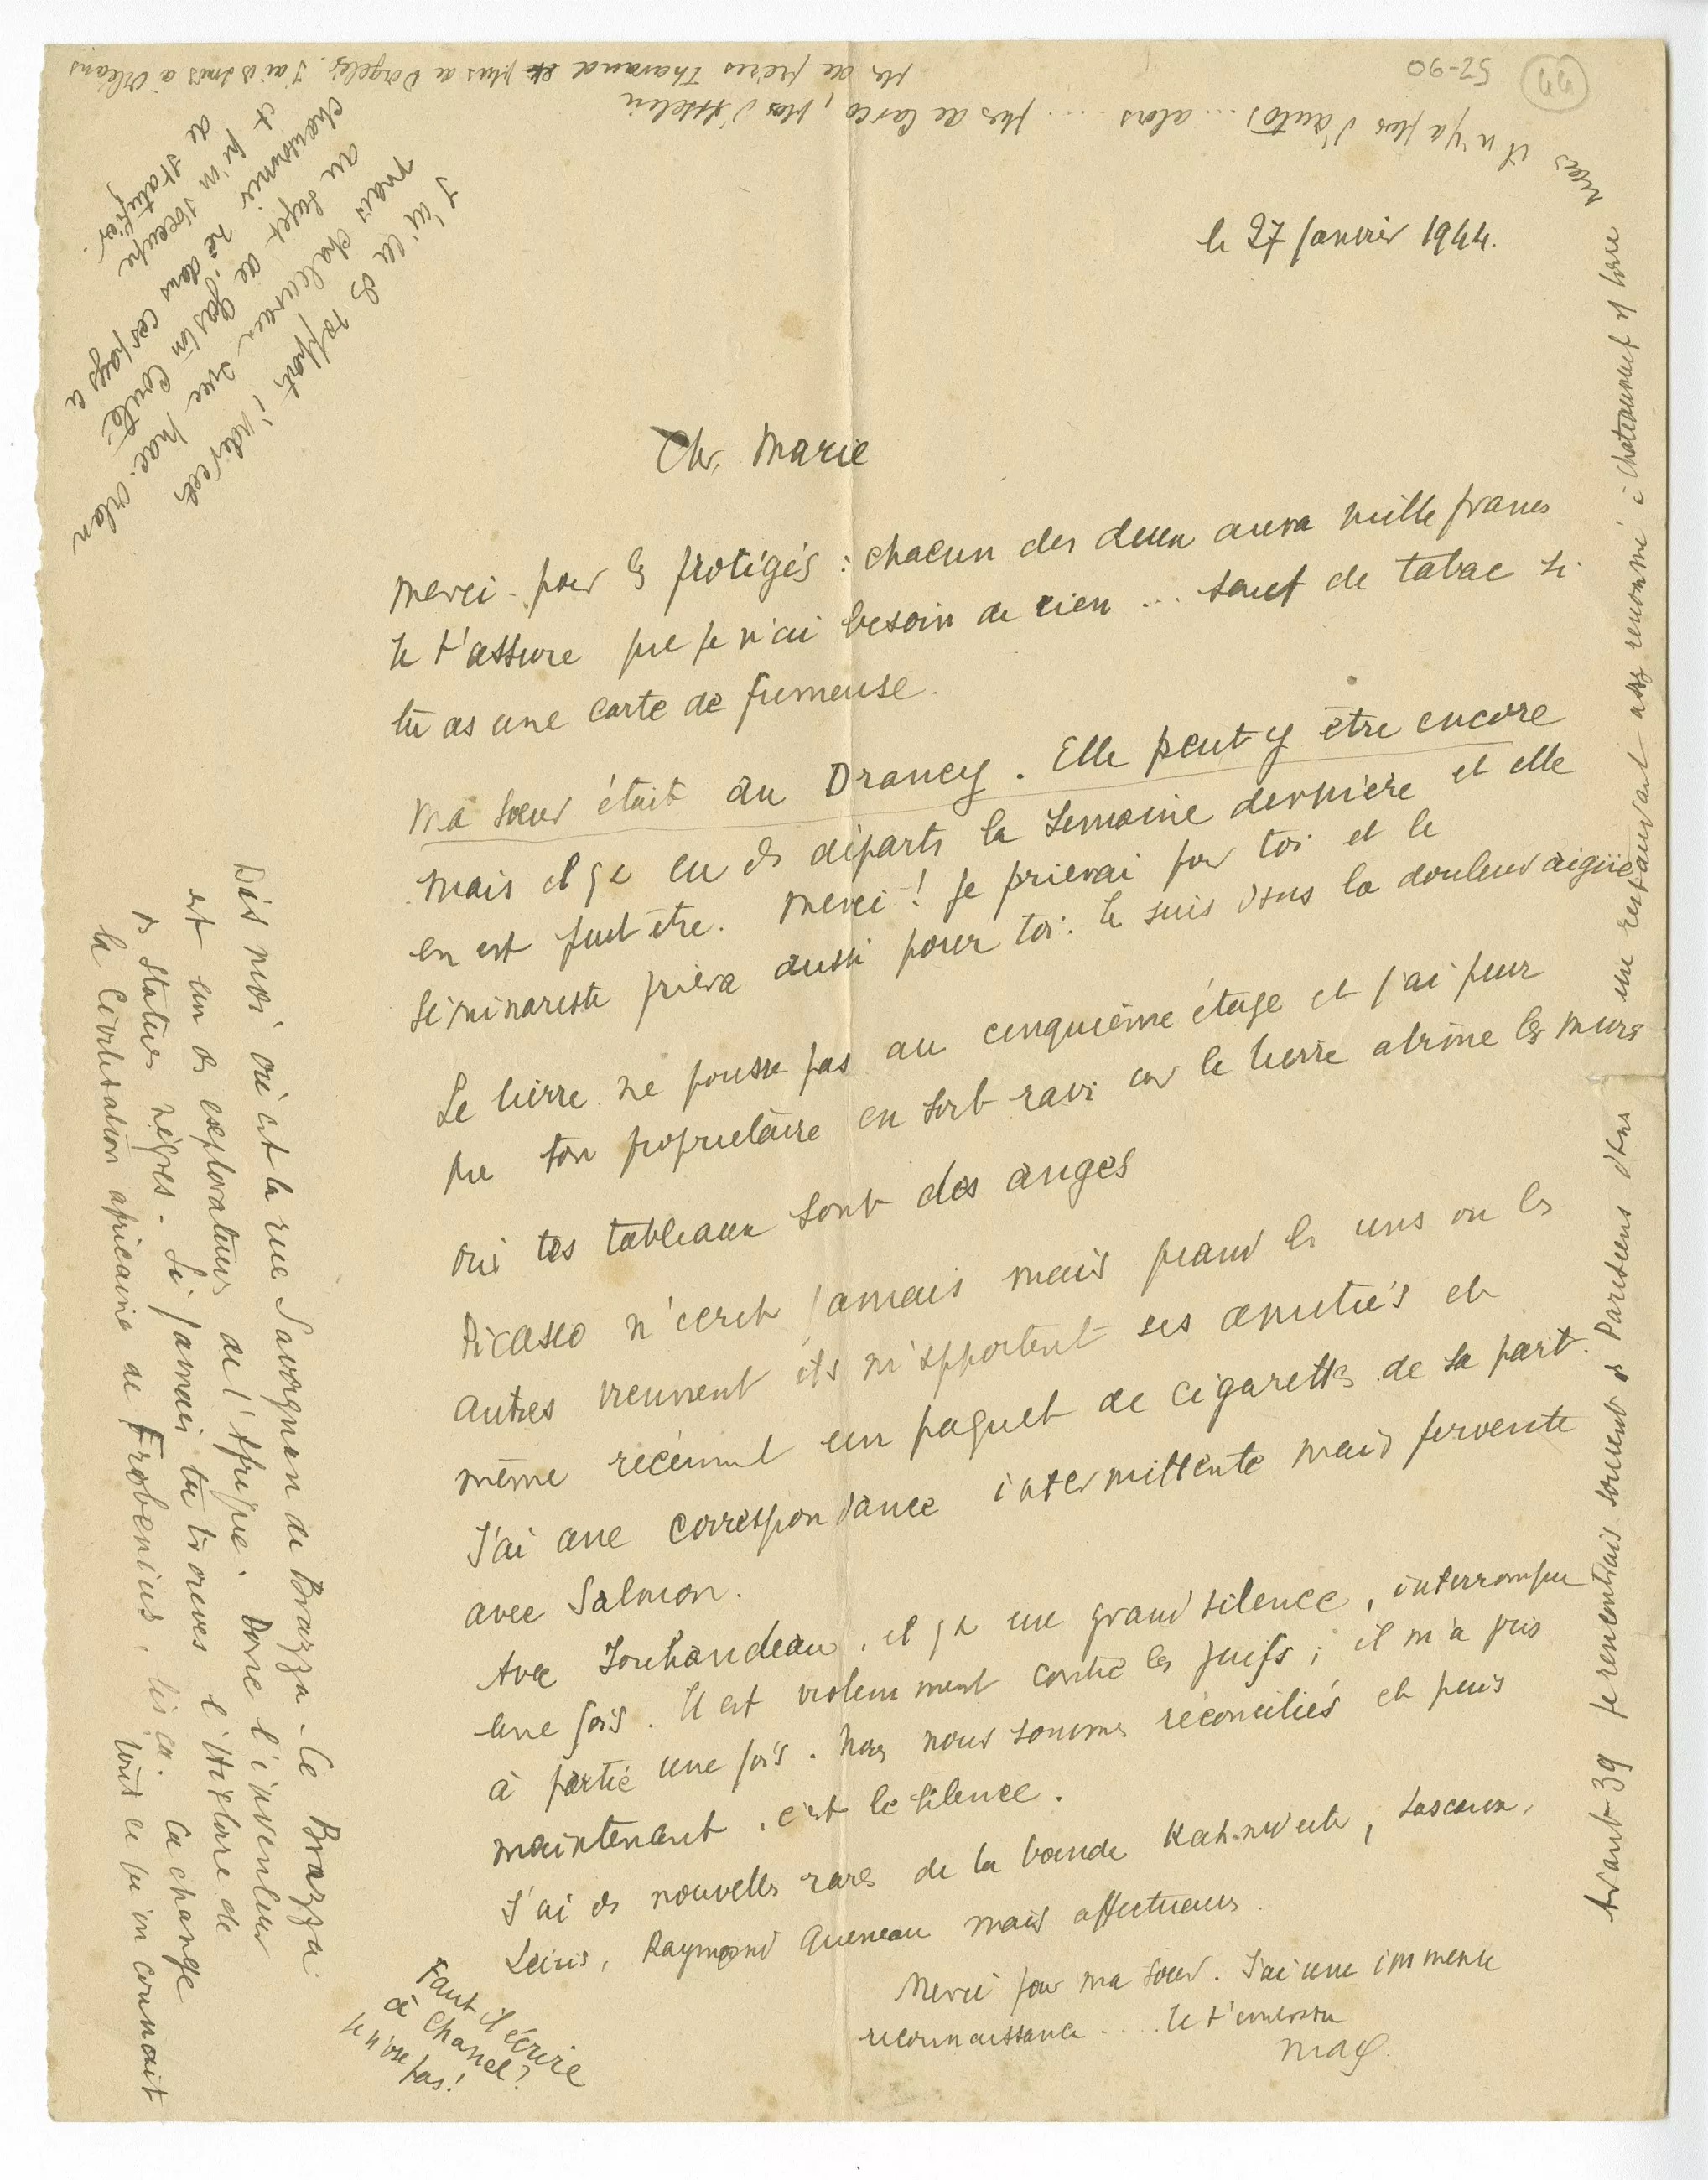 le 27 janvier 1944.
Ch. Marie
Merci pour les protégés : chacun des deux aura mille francs
Je t'assure que je n'ai besoin de rien ... sauf de tabac si
tu as une carte de fumeuse.
Ma sœur était au Drancy. Elle peut y être encore
mais il y a eu des départs la semaine dernière et elle
en est peut être. Merci ! Je prierai pour toi et le
séminariste priera aussi pour toi. Je suis dans la douleur aigüe
Le lierre ne pousse pas au cinquième étage et j'ai peur
que ton propriétaire en soit ravi car le lierre abîme les murs
Oui tes tableaux sont des anges
Picasso n'écrit jamais mais quand les uns ou les
autres viennent ils m'apportent ses amitiés et
même récemment un paquet de cigarettes de sa part.
J'ai une correspondance intermittente mais fervente
avec Salmon.
Avec Jouhandeau, il y a un grand silence, interrompu
une fois. Il est violemment contre les juifs ; il m'a pris
à partie une fois. Nous nous sommes réconciliés et puis
maintenant, c'est le silence.
J'ai des nouvelles rares de la bande Kahnweiler, Lascaux,
Leiris, Raymond Queneau mais affectueuses.
Merci pour ma sœur. J'ai une immense
reconnaissance ... Je t'embrasse
Max.
Faut il écrire
à Chanel ?
Je n'ose
pas !
Dis moi où est la rue Savorgnan de Brazza. Ce Brazza
est un des explorateurs de l'Afrique. Donc l'inventeur
des statues nègres. Si jamais tu trouves l'Histoire de
la Civilisation africaine de Frobenius, lis ça. Ca change
tout ce qu'on connait
Avant 39 je rencontrais souvent des Parisiens dans un restaurant assez renommé à Chateauneuf sur Loire
mais il n'y a plus d'autos ... alors ... plus de Carco, plus d'Asselin
plus de frères Tharaud et plus de Dorgelès. J'ai des amis à Orléans
J'ai eu des rapports
mais chaleureux avec Mac Orlan
au sujet de Gaston Couté.
né dans ces pays
et qu'on s'occupe
de statufier.
52-90
44